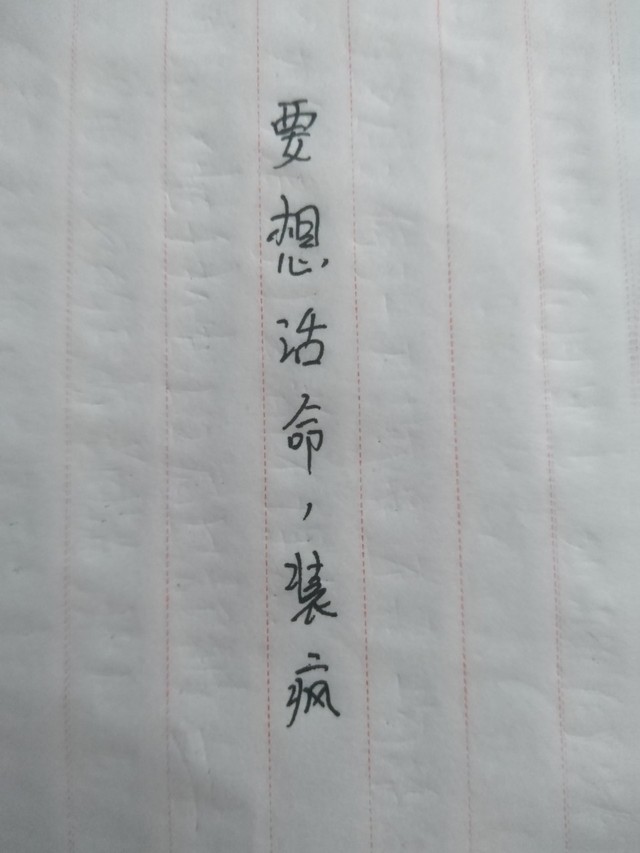 要想活命，装疯